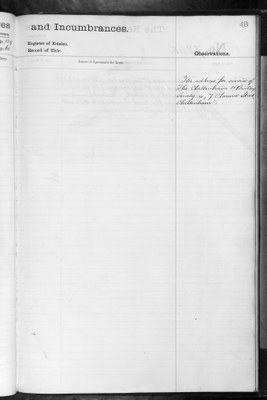 es and Incumbrances. 43
Register of Estates.
Record of Title.
Observations.
The address for service of
The Cheltenham &
Society is, 7 Street
Cheltenham